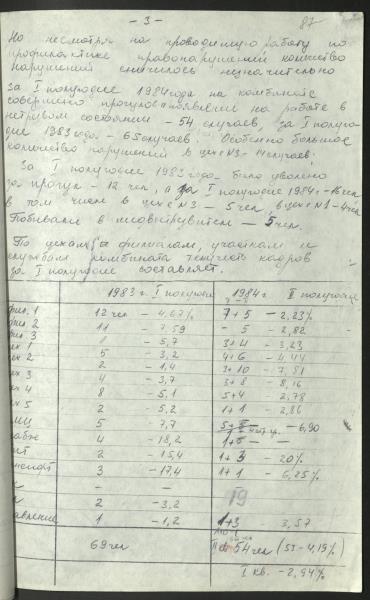 - 3 -
87
Но несмотря на проводимую работу по
профилактике правонарушений количество
нарушений снизилось незначительно
За I полугодие 1984 года на комбинате
совершено прогулов и появлений на работе в
нетрезвом состоянии - 54 случаев, за I полуго-
дие 1983 года - 65 случаев. Особенно большое
количество нарушений в цехе №3 - 14 случаев.
За I полугодие 1983 года было уволено
за прогул - 12 чел, а за I полугодие 1984 г.
в том числе в цехе №3 - 5 чел, в цехе №1 - 4 чел
Побывали в медвытрезвителе - 5 чел.
По цехам, филиалам, участкам и
службам комбината текучесть кадров
за I полугодие составляет.
1983 г. I полугодие 1984 г. II полугодие
фил. 1 12 чел - 4,67% 7+5 - 2,23%
фил 2 11 - 7,59 - 5 - 2,82
фил 3 1 - 5,7 3+4 - 3,23
цех 1 5 - 3,2 4+6 - 4,44
цех 2 2 - 1,4 3+10 - 7,81
цех 3 4 - 3,7 3+8 - 8,16
цех 4 8 - 5,1 5+4 - 2,78
цех 5 2 - 5,2 1+1 - 2,86
5 - 7,7 - 6,90
4 - 18,2 1+5 - —
2 - 15,4 1+3 - 20%
транспорт 3 - 17,4 1+1 - 6,25%
— —
2 - 3,2 19
правление 1 - 1,2 1+3 - 3,57
69 чел 54 чел (55 - 4,19%)
I кв. - 2,94%